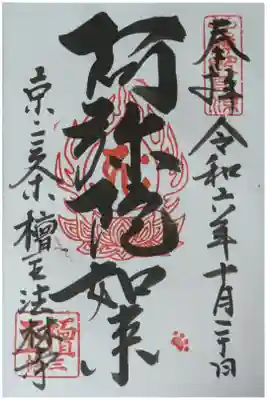 奉拝 令和二年十月二十日
阿弥陀如来
京三条檀王法林寺